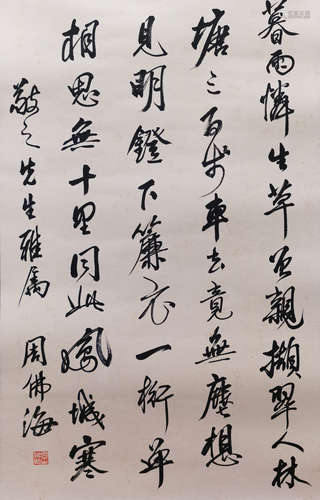 暮雨憐生草曾親擷翠人林
塘三百步車去竟無塵想
見明鐙下簾衣一桁單
相思無十里同此鳳城寒
敬之先生雅屬 周佛海